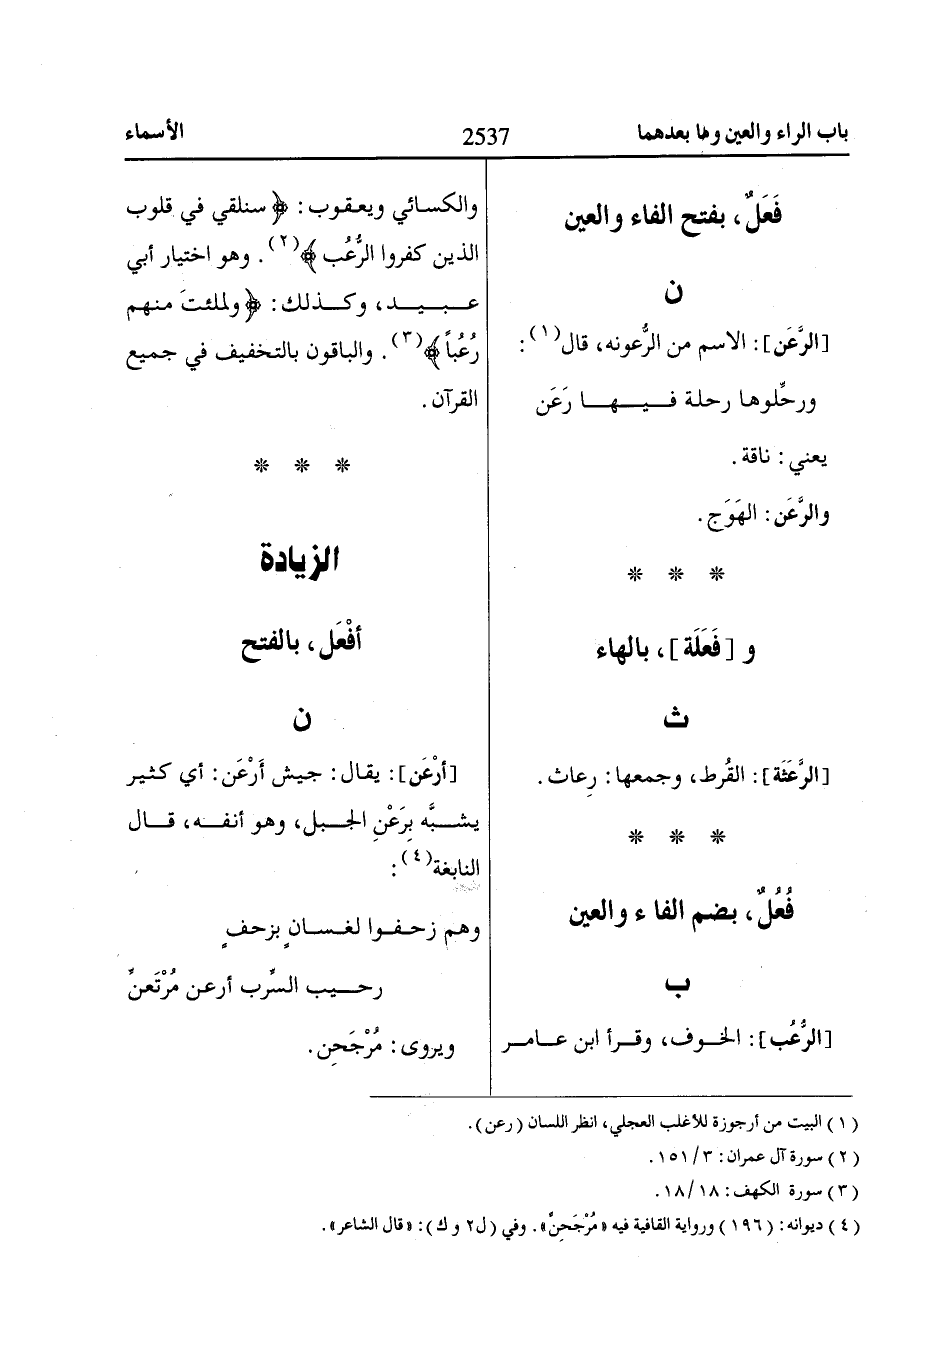 باب الراء والعين وما بعدهما
2537
الأسماء
فَعَلٌ، بفتح الفاء والعين
ن
[الرَّعَن]: الاسم من الرُّعونه، قال(١):
ورحِّلوها رحلة فيهـا رَعَن
يعني: ناقة.
والرَّعَن: الهَوَج.
* * *
و [فَعَلَة]، بالهاء
ث
[الرَّعَثَة]: القُرط، وجمعها: رِعاث.
* * *
فُعُلٌ، بضم الفاء والعين
ب
[الرُّعُب]: الخوف، وقرأ ابن عامر
والكسائي ويعقوب: ﴿سنلقي في قلوب
الذين كفروا الرُّعُب﴾(٢). وهو اختيار أبي
عبيد، وكذلك: ﴿ولملئتَ منهم
رُعُباً﴾(٣). والباقون بالتخفيف في جميع
القرآن.
* * *
الزيادة
أفْعَل، بالفتح
ن
[أرْعَن]: يقال: جيش أَرْعَن: أي كثير
يشبَّه بِرَعْنِ الجبل، وهو أنفه، قال
النابغة(٤):
وهم زحفوا لغسانٍ بزحفٍ
رحيب السِّرب أرعن مُرْتَعنٍّ
ويروى: مُرْجَحِن.
(١) البيت من أرجوزة للأغلب العجلي، انظر اللسان (رعن).
(٢) سورة آل عمران: ٣/ ١٥١.
(٣) سورة الكهف: ١٨/١٨.
(٤) ديوانه: (١٩٦) ورواية القافية فيه «مُرْجَحنِّ». وفي (ل٢ و ك): «قال الشاعر».